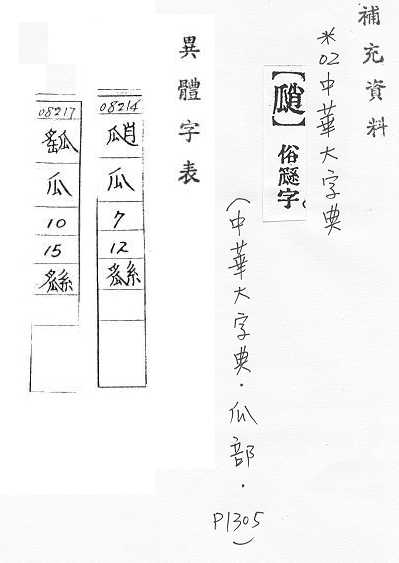 補充資料
*02中華大字典
【】俗字。
(中華大字典・瓜部・P1305)
異體字表
08214
瓜
7
12
08217
瓜
10
15